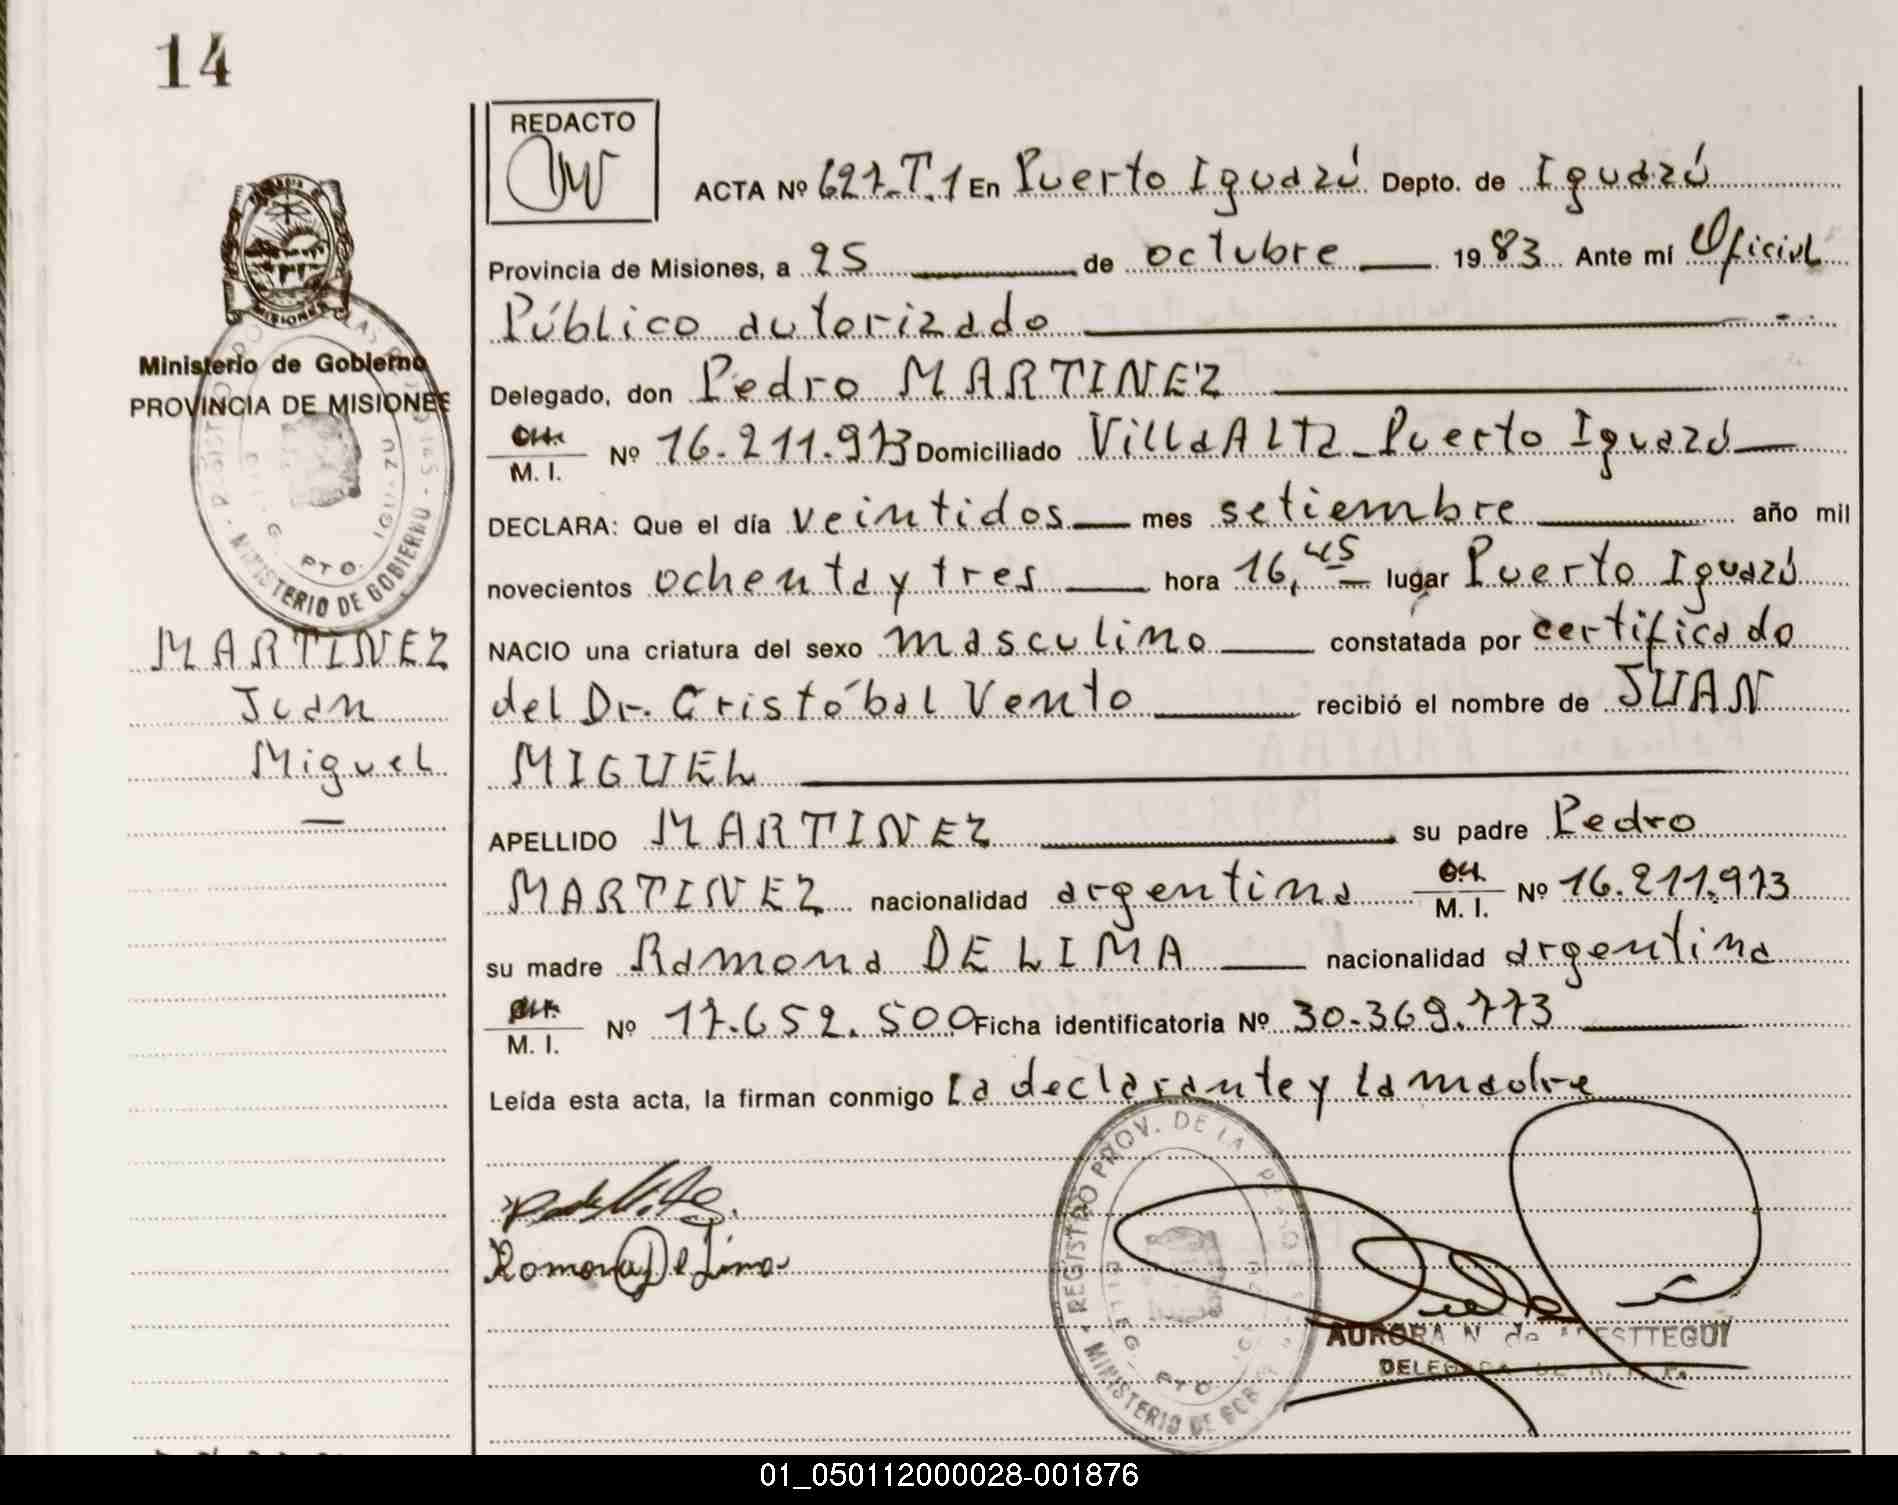 14
REDACTO
ACTA Nº 627.T.1 En Puerto Iguazú Depto. de Iguazú
Provincia de Misiones, a 25 de octubre 1983 Ante mí Oficial
Público autorizado
Delegado, don Pedro MARTINEZ
M. I. Nº 16.211.973 Domiciliado Villa Alta - Puerto Iguazú
DECLARA: Que el día veintidos mes setiembre año mil
novecientos ochenta y tres hora 16,45 lugar Puerto Iguazú
NACIO una criatura del sexo masculino constatada por certificado
del Dr. Cristóbal Vento recibió el nombre de JUAN
MIGUEL
APELLIDO MARTINEZ su padre Pedro
MARTINEZ nacionalidad argentina M. I. Nº 16.211.973
su madre Ramona DE LIMA nacionalidad argentina
M. I. Nº 17.652.500 Ficha identificatoria Nº 30.369.773
Leída esta acta, la firman conmigo la declarante y la madre
Ramona De Lima
AURORA N. de
DELEGADA
REGISTRO PROV. DE LAS PERSONAS
MINISTERIO DE GOB
DELEG. PTO.
MISIONES
Ministerio de Gobierno
PROVINCIA DE MISIONES
MINISTERIO DE GOBIERNO
PTO. IGUAZU
MARTINEZ
Juan
Miguel
01_050112000028-001876